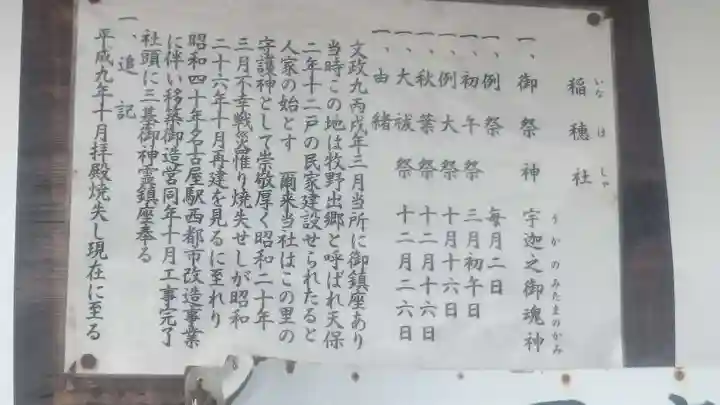 稲穂社
いなほしゃ
一、御祭神 宇迦之御魂神
うかのみたまのかみ
一、例祭 毎月二日
一、初午祭 三月初午日
一、例大祭 十月十六日
一、秋葉祭 十二月十六日
一、大祓祭 十二月二六日
一、由緒
文政九丙戌年三月当所に御鎮座あり
当時この地は牧野出郷と呼ばれ天保
二年十二戸の民家建設せられたると
人家の始とす 爾来当社はこの里の
守護神として崇敬厚く昭和二十年
三月不幸戦災罹り焼失せしが昭和
二十六年十月再建を見るに至れり
昭和四十年名古屋駅西都市改造事業
に伴い移築御造営同年十月工事完了
社頭に三基御神霊鎮座奉る
一、追記
平成九年十月拝殿焼失し現在に至る